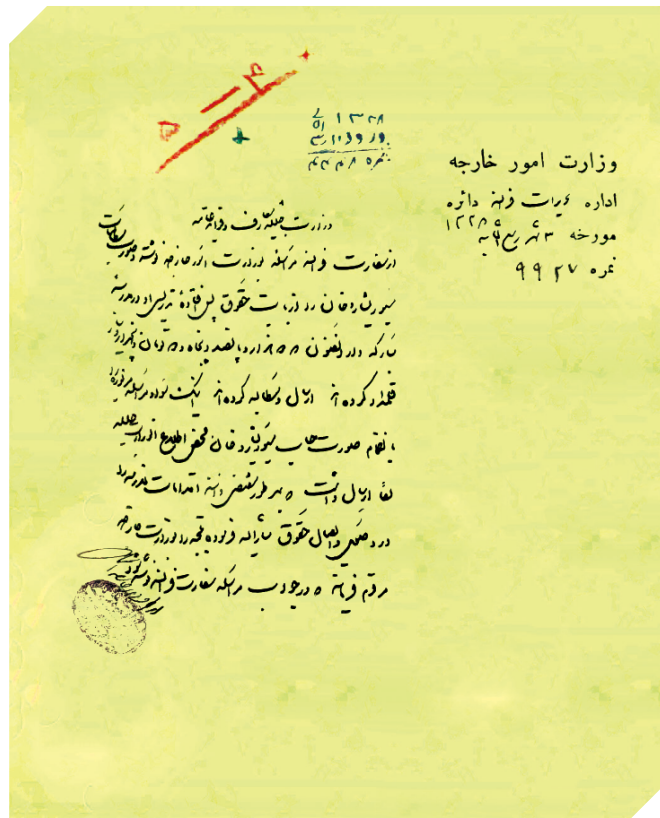 وزارت امور خارجه
اداره تحریرات فرانسه دائره
مورخه ۳ شهر ربیع الثانیه ۱۳۲۸
نمره ۹۹۲۷
۱۳۲۸
ورود ۱۱
نمره
وزارت جلیله معارف و فوائد عامه
از سفارت فرانسه مراسله بوزارت امور خارجه نوشته و صورت
مسیو ریشارد خان را از بابت حقوق پس افتاده تدریس او در مدرسه
مبارکه دارالفنون که هزار و پانصد و پنجاه و دو تومان و پنجهزار
قلمداد کرده‌اند ارسال و مطالبه کرده‌اند اینک سواد مراسله مزبوره را
بانضمام صورت حساب مسیو ریشارد خان محض اطلاع آنوزارت جلیله
لفا ارسال داشت که بهر طور مقتضی دانند اقدامات لازمه را
در وصول و ایصال حقوق مشارالیه فرموده نتیجه را بوزارت خارجه
مرقوم فرمایند که در جواب مراسله سفارت فرانسه نوشته شود